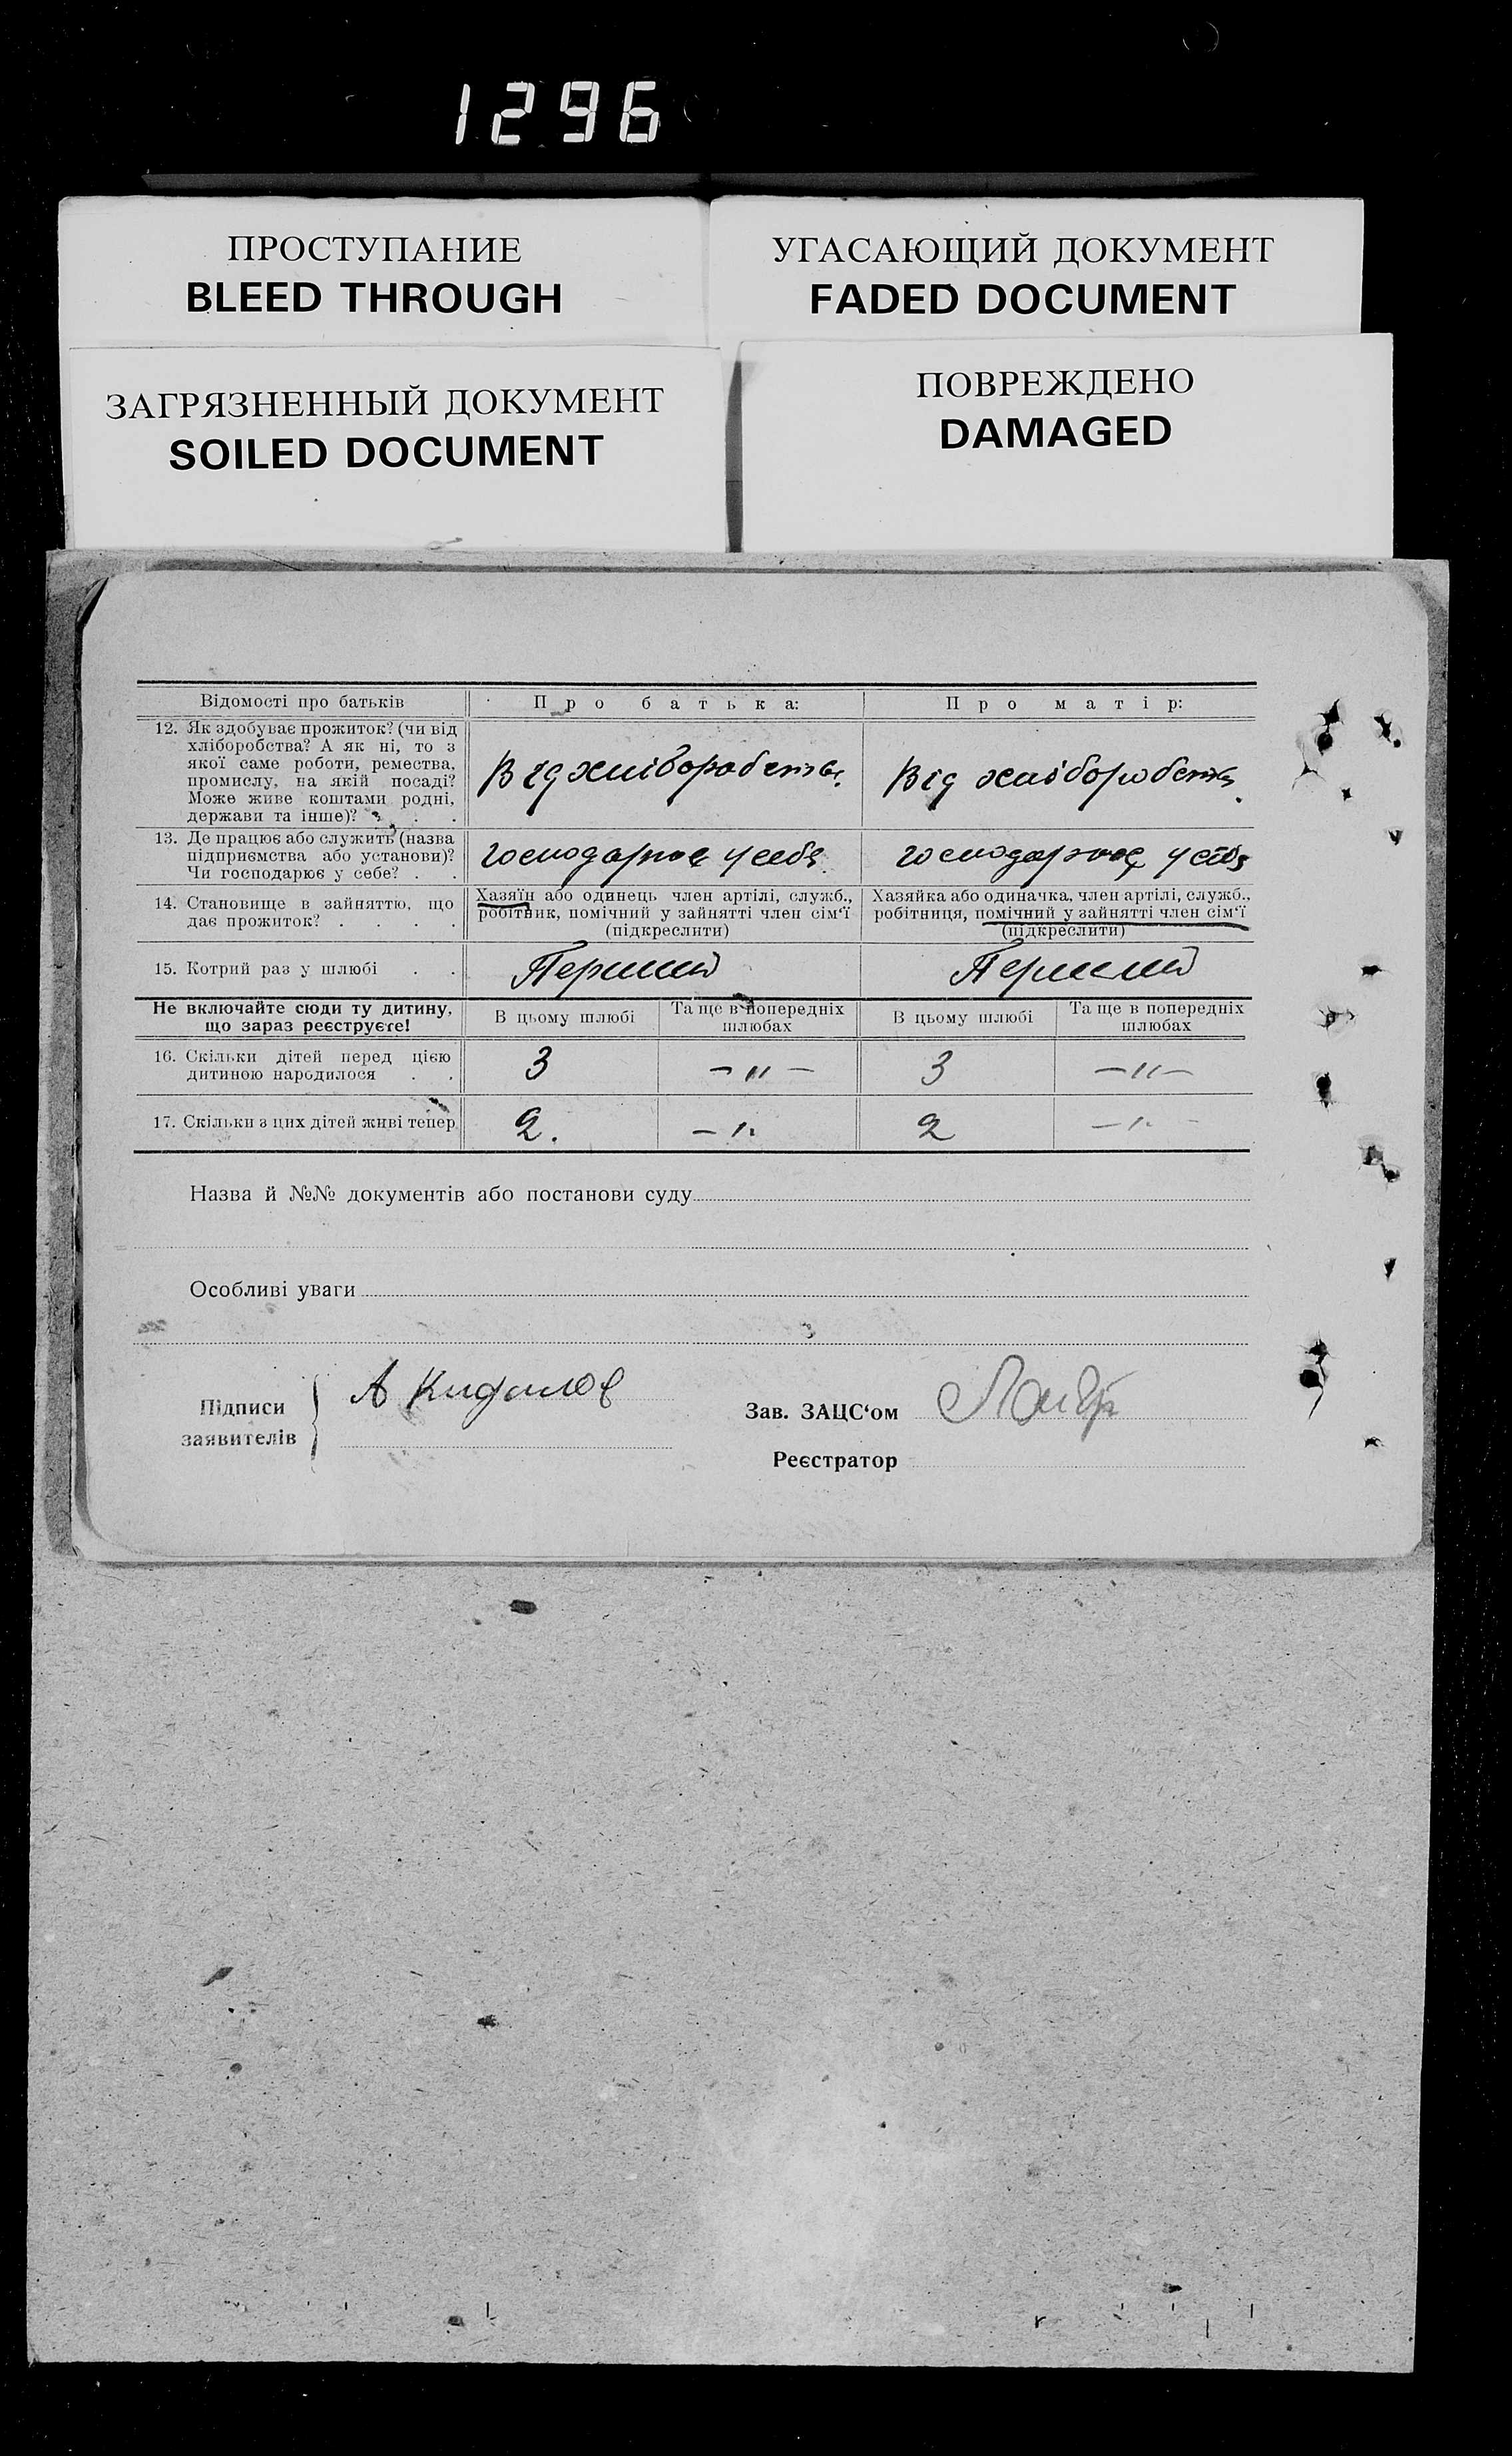 1296
ПРОСТУПАНИЕ
BLEED THROUGH
УГАСАЮЩИЙ ДОКУМЕНТ
FADED DOCUMENT
ЗАГРЯЗНЕННЫЙ ДОКУМЕНТ
SOILED DOCUMENT
ПОВРЕЖДЕНО
DAMAGED
Відомості про батьків
Про батька:
Про матір:
12. Як здобуває прожиток? (чи від
хліборобства? А як ні, то з
якої саме роботи, ремества,
промислу, на якій посаді?
Може живе коштами родні,
держави та інше)? . . .
Від хліборобства.
Від хліборобства.
13. Де працює або служить (назва
підприємства або установи)?
Чи господарює у себе? . .
господарює у себе.
господарює у себе
14. Становище в зайняттю, що
дає прожиток? . . . .
Хазяїн або одинець член артілі, служб.,
робітник, помічний у зайнятті член сім‘ї
(підкреслити)
Хазяйка або одиначка, член артілі, служб.,
робітниця, помічний у зайнятті член сім‘ї
(підкреслити)
15. Котрий раз у шлюбі . .
Перший
Перший
Не включайте сюди ту дитину,
що зараз реєструєте!
В цьому шлюбі
Та ще в попередніх
шлюбах
В цьому шлюбі
Та ще в попередніх
шлюбах
16. Скільки дітей перед цією
дитиною народилося . .
3
— „ —
3
— „ —
17. Скільки з цих дітей живі тепер
2.
— „
2
— „ —
Назва й №№ документів або постанови суду
Особливі уваги
Підписи
заявителів
А Кидалов
Зав. ЗАЦС‘ом
Реєстратор